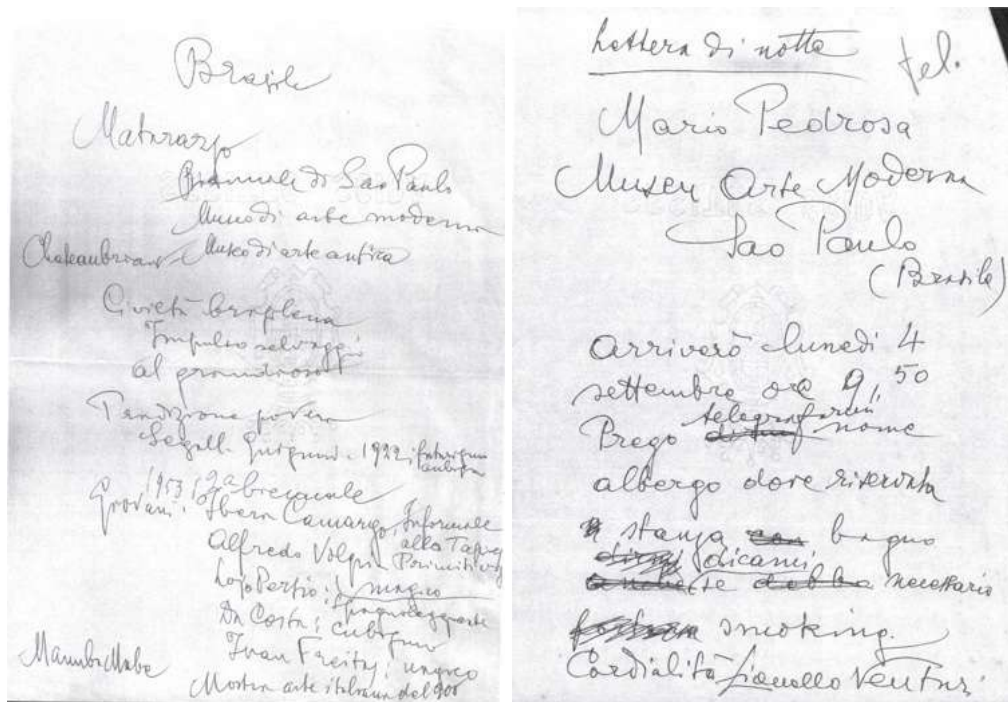 Brasile
Matarazzo
Biennale di Sao Paulo
Museo di arte moderna
Chateaubriant Museo di arte antica
Civiltà brasiliana
Impulso selvaggio
al grandioso
Tradizione povera
Segall Guignard 1922
1953 2a biennale
Giovani: Ibera Camargo: Informale
alla
Alfredo Volpi Primitivo
magico
Da Costa: cubismo
Ivan Freitas: magico
Manabu Mabe
Mostra arte italiana del 900
Lettera di notte
tel.
Mario Pedrosa
Museu Arte Moderna
Sao Paulo
(Brasile)
arriverò lunedì 4
settembre ore 9,50
telegrafarmi
Prego nome
albergo dove riservata
stanza con bagno
dicami
se debba necessario
smoking.
Cordialità Lionello Venturi